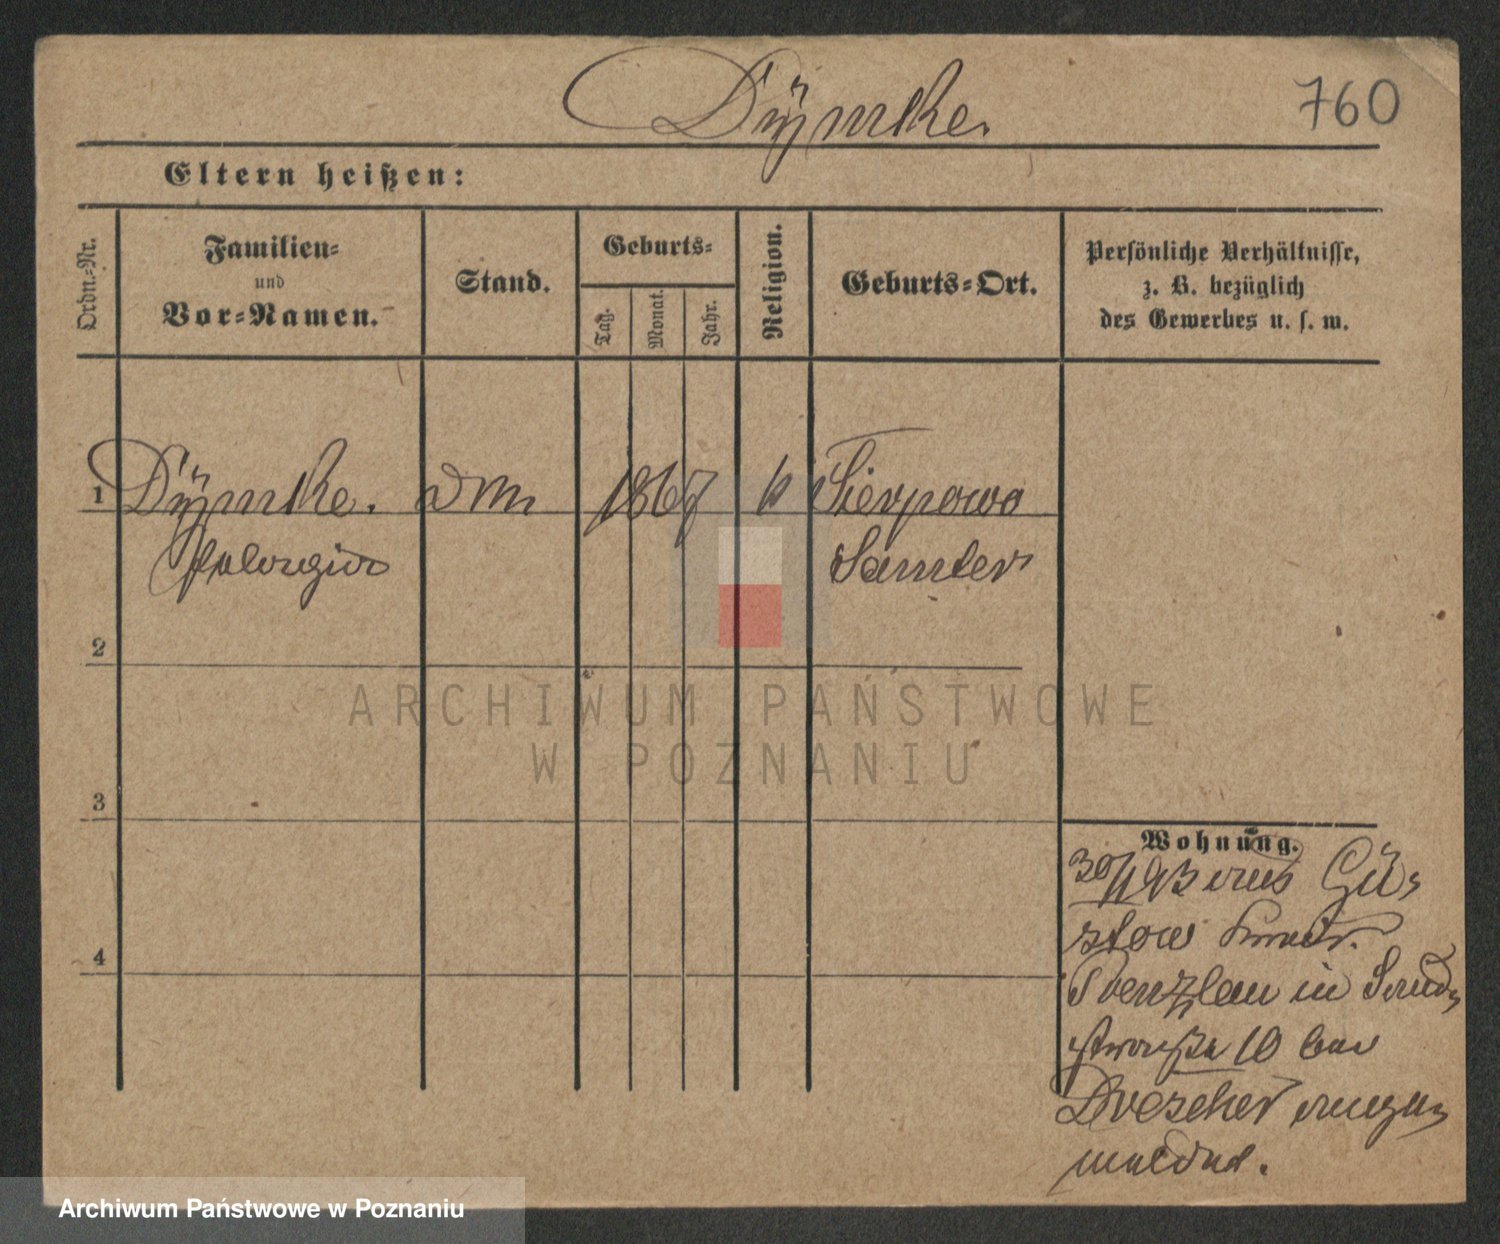 Dÿmke.
760
Eltern heißen:
Ordn.-Nr.
Familien-
und
Vor-Namen.
Stand.
Geburts-
Tag.
Monat.
Jahr.
Religion.
Geburts-Ort.
Persönliche Verhältnisse,
z. B. bezüglich
des Gewerbes u. s. w.
1
Dÿmke.
1867
k
Sierpowo
Pelagia
Samter
2
3
4
Wohnung.
30/1 93 aus Gü-
stow
Prenzlau in Sand-
straße 10 bei
Drescher ange-
meldet.
ARCHIWUM PAŃSTWOWE
W POZNANIU
Archiwum Państwowe w Poznaniu